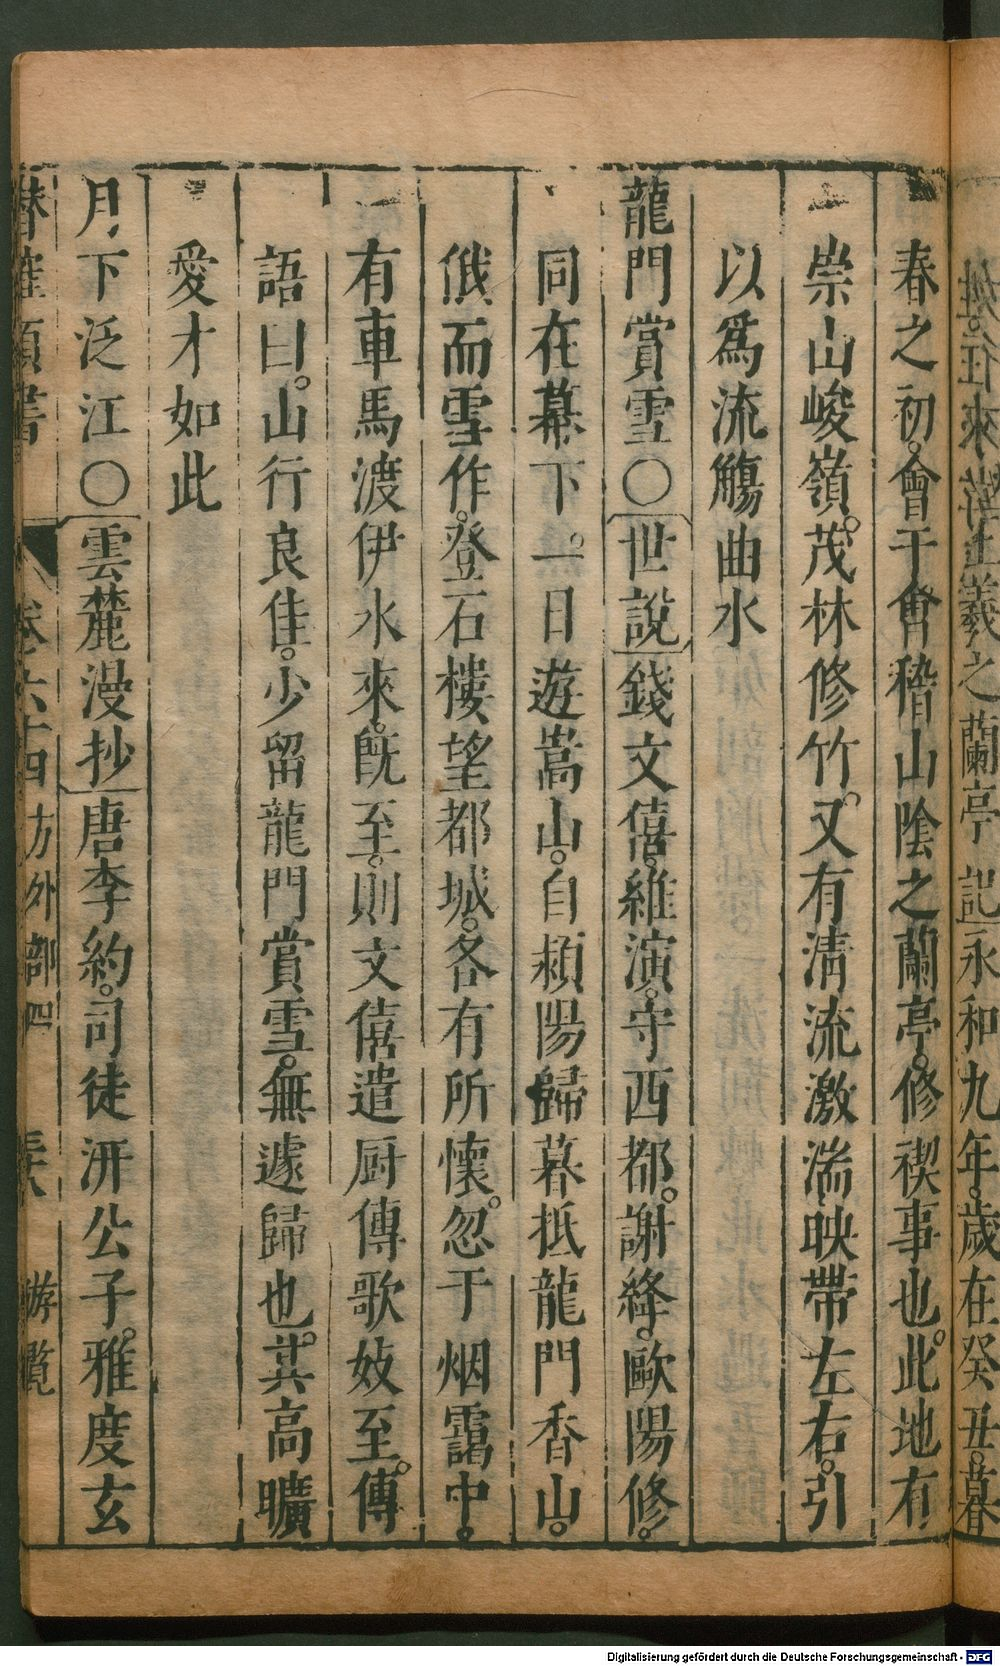 王羲之蘭亭記永和九年。歲在癸丑。暮
春之初。會于會稽山陰之蘭亭。修禊事也。此地有
崇山峻嶺。茂林修竹。又有清流激湍映帶左右。引
以爲流觴曲水
龍門賞雪○世說錢文僖。維演。守西都。謝絳。歐陽修。
同在幕下。一日遊嵩山。自潁陽歸暮抵龍門香山。
俄而雪作。登石樓望都城。各有所懷。忽于烟靄中。
有車馬渡伊水來。旣至。則文僖遣厨傳歌妓至。傳
語曰。山行良佳。少留龍門賞雪。無遽歸也。其高曠
愛才如此
月下泛江○雲麓漫抄唐李約。司徒汧公子。雅度玄
卷六十四方外部四 游覽
Digitalisierung gefördert durch die Deutsche Forschungsgemeinschaft - DFG